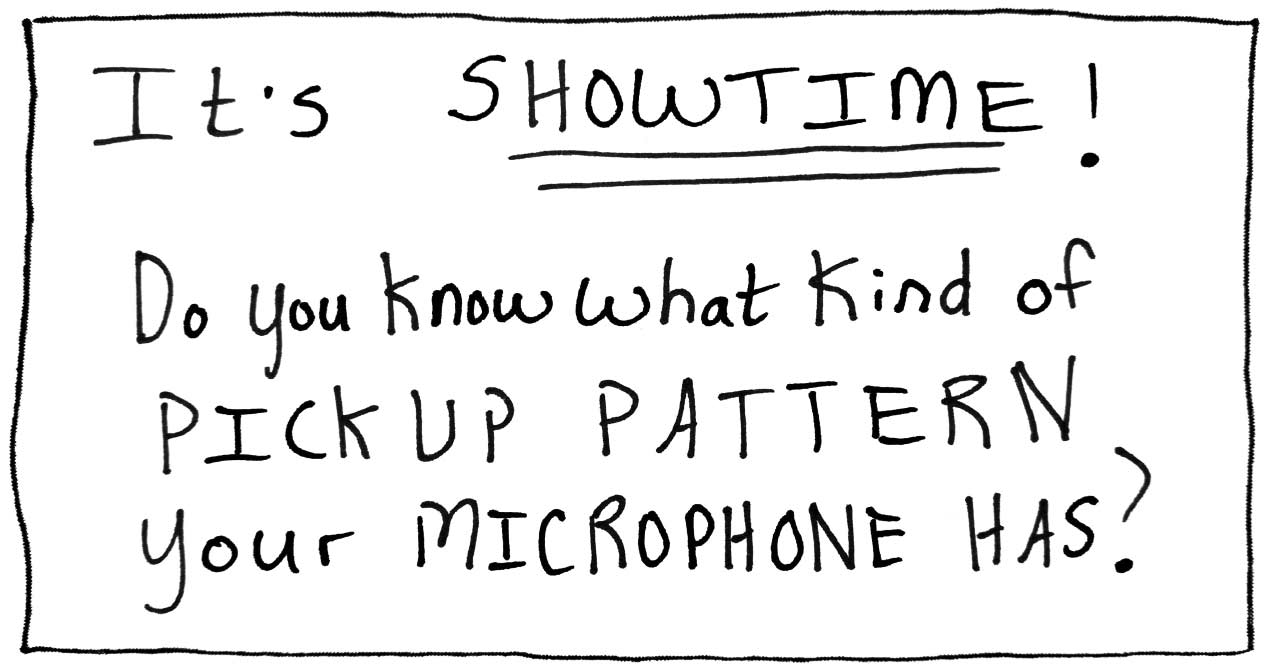 It's SHOWTIME!
Do you know what kind of
PICKUP PATTERN
your MICROPHONE HAS?